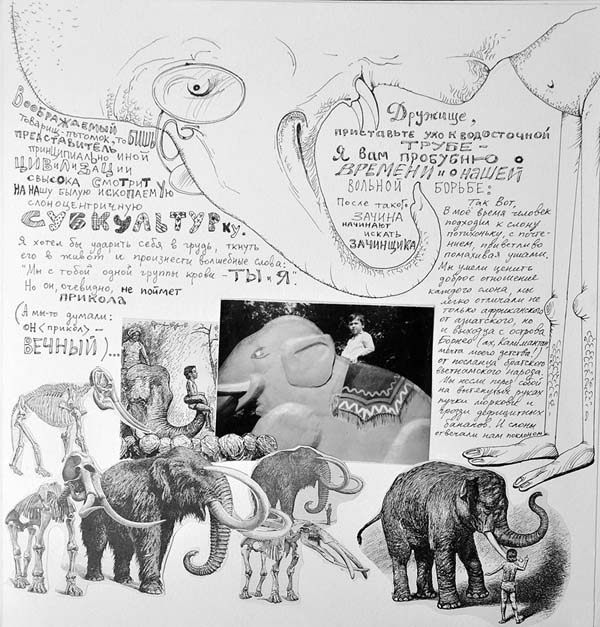 Воображаемый
товарищ-потомок, то бишь
представитель
принципиально иной
цивилизации
свысока смотрит
на нашу былую ископаемую
слоноцентричную
субкультурку.
Я хотел бы ударить себя в грудь, ткнуть
его в живот и произнести волшебные слова:
"Мы с тобой одной группы крови - ты и я".
Но он, очевидно, не поймет
прикола
(А мы-то думали:
он (прикол) -
вечный)...
Дружище,
приставьте ухо к водосточной
трубе -
Я вам пробубню о
времени и о нашей
вольной борьбе:
После такого
зачина
начинают
искать
зачинщика
Так вот.
В моё время человек
подходил к слону
потихоньку, с почте-
нием, приветливо
помахивая ушами.
Мы умели ценить
доброе отношение
каждого слона, мы
легко отличали не
только африканского
от азиатского, но
и выходца с острова
Борнео (ах, Калимантан
мечта моего детства!)
от посланца братского
вьетнамского народа.
Мы несли перед собой
на вытянутых руках
пучки моркови и
грозди дефицитных
бананов. И слоны
отвечали нам поклоном